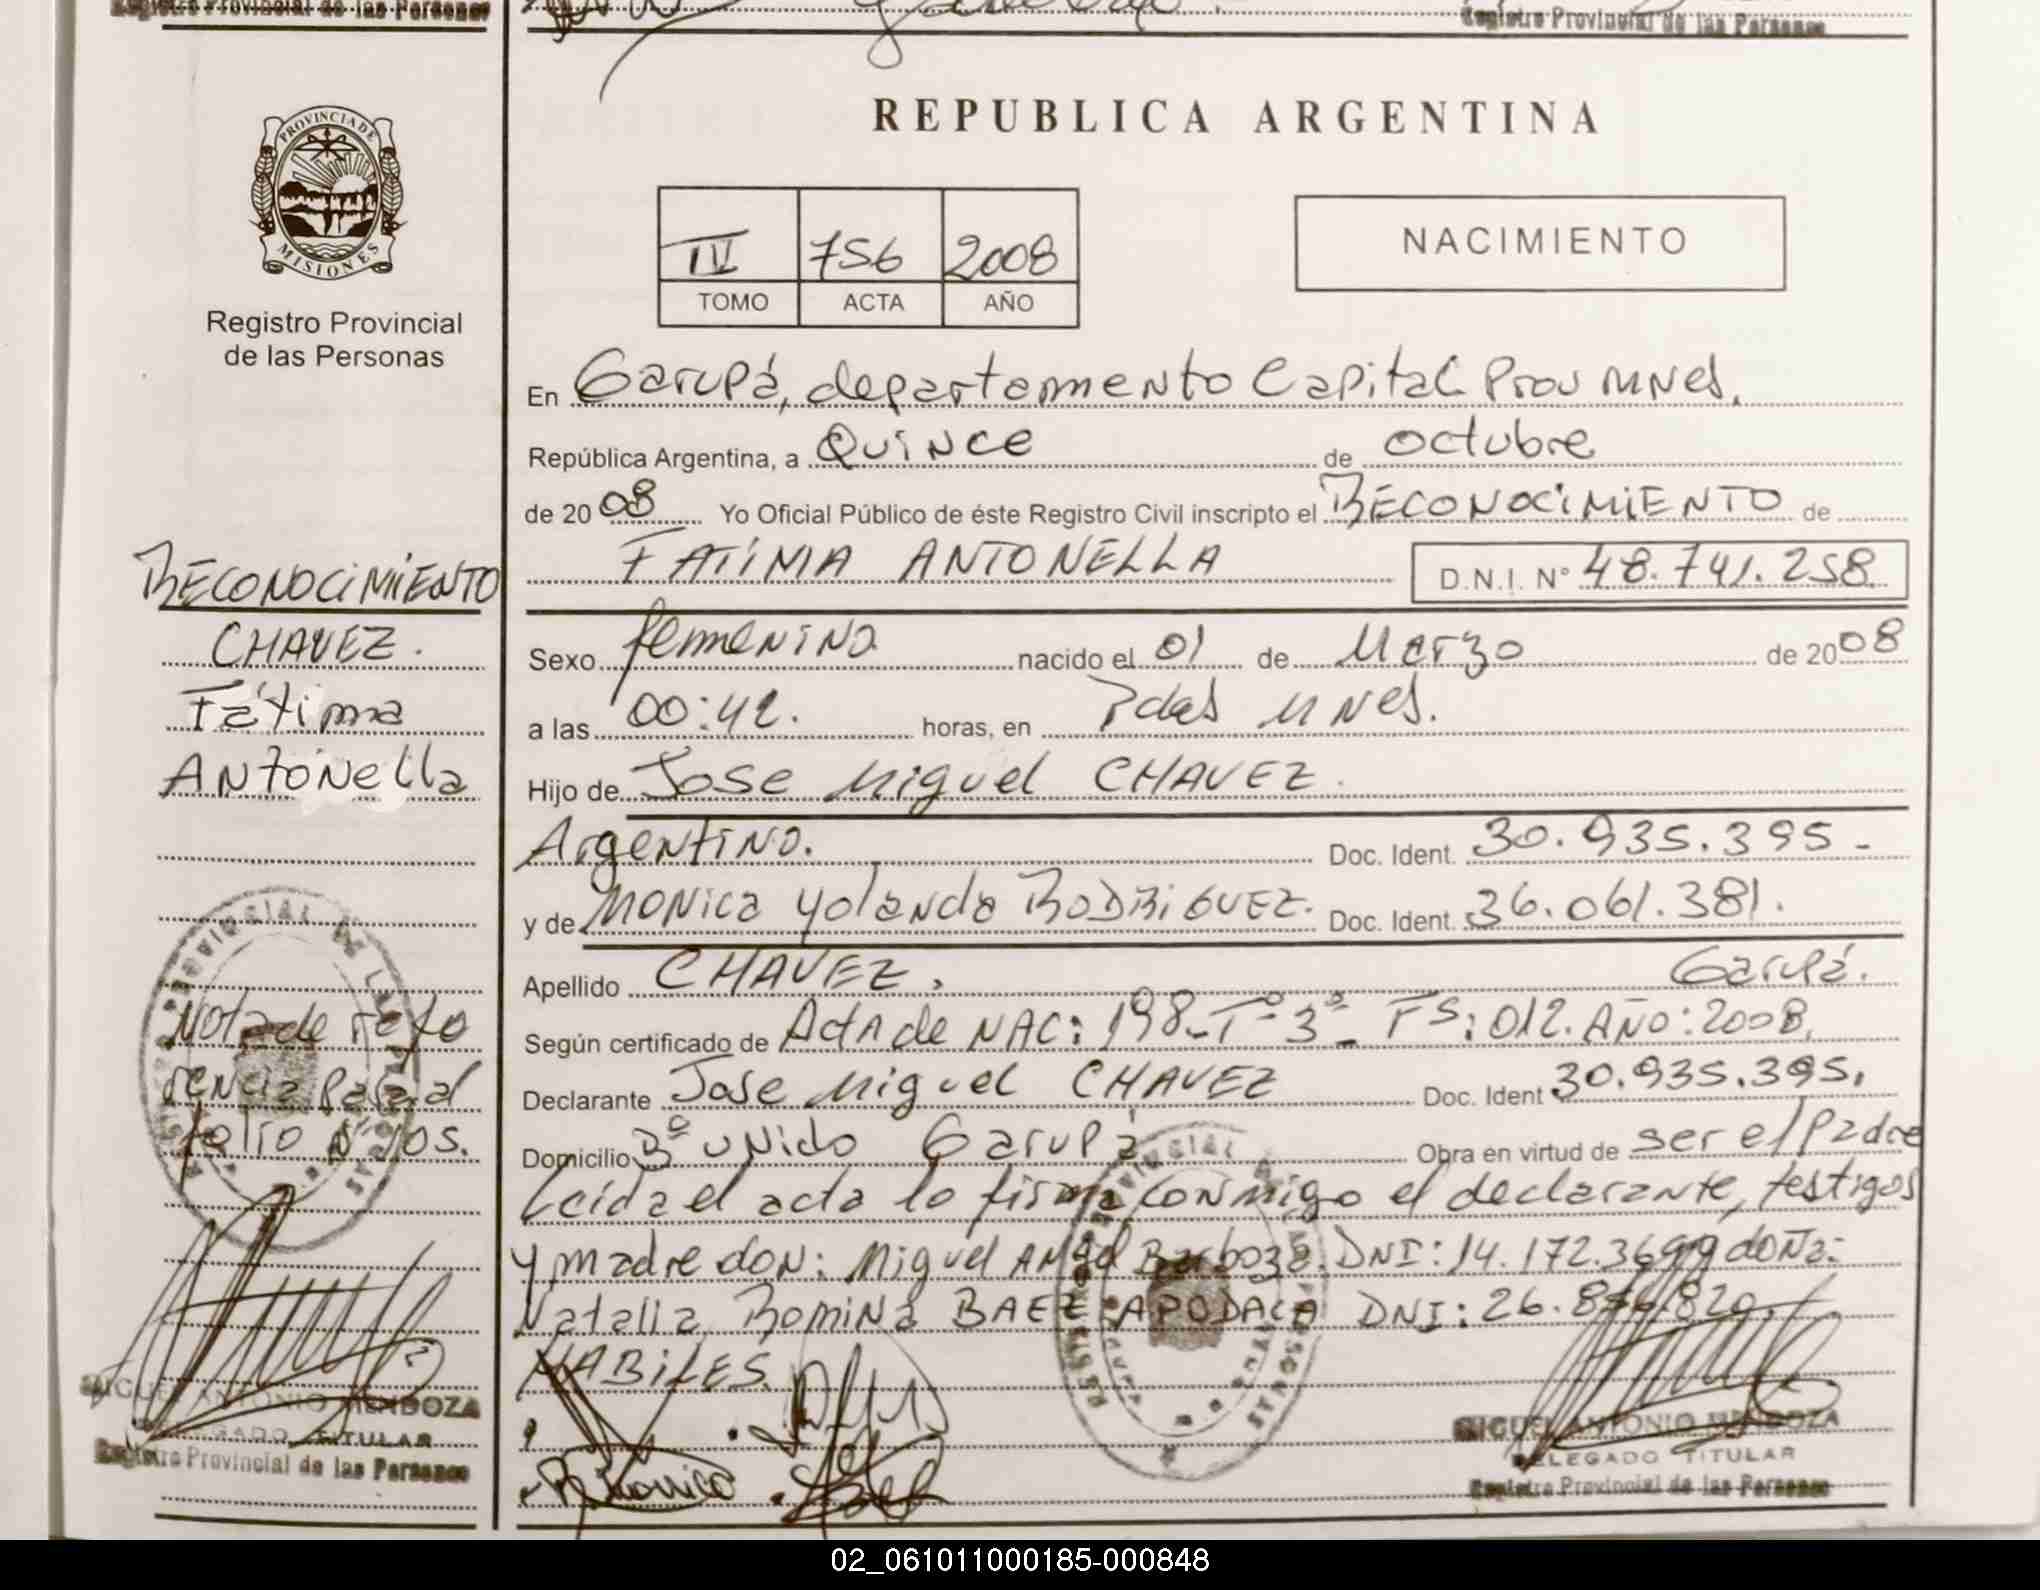 Registro Provincial de las Personas
Registro Provincial de las Personas
REPUBLICA ARGENTINA
PROVINCIA DE
MISIONES
Registro Provincial
de las Personas
IV 756 2008
TOMO ACTA AÑO
NACIMIENTO
En Garupá, departamento Capital Prov Mnes.
República Argentina, a Quince de octubre
de 2008 Yo Oficial Público de éste Registro Civil inscripto el RECONOCIMIENTO de
FATIMA ANTONELLA D.N.I. Nº 48.741.258
Sexo femenino nacido el 01 de Marzo de 2008
a las 00:42. horas, en Pdas Mnes.
Hijo de Jose Miguel CHAVEZ.
Argentino. Doc. Ident. 30.935.395-
y de Monica Yolanda RODRIGUEZ. Doc. Ident. 36.061.381.
Apellido CHAVEZ. Garupá.
Según certificado de Acta de NAC: 198- Tº- 3º- Fs: 012. AÑO: 2008.
Declarante Jose Miguel CHAVEZ Doc. Ident 30.935.395.
Domicilio Bº Unido Garupá Obra en virtud de ser el Padre
Leida el acta lo firma conmigo el declarante, testigos
y madre don: Miguel Angel Barboza. DNI: 14.172.369 y doña:
Natalia Romina BAEZ APODACA DNI: 26.856.829.
HABILES.
RECONOCIMIENTO
CHAVEZ.
Fátima
Antonella
Nota de refe
rencia Pasa al
folio Nº 105.
MIGUEL ANTONIO MENDOZA
DELEGADO TITULAR
Registro Provincial de las Personas
MIGUEL ANTONIO MENDOZA
DELEGADO TITULAR
Registro Provincial de las Personas
02_061011000185-000848